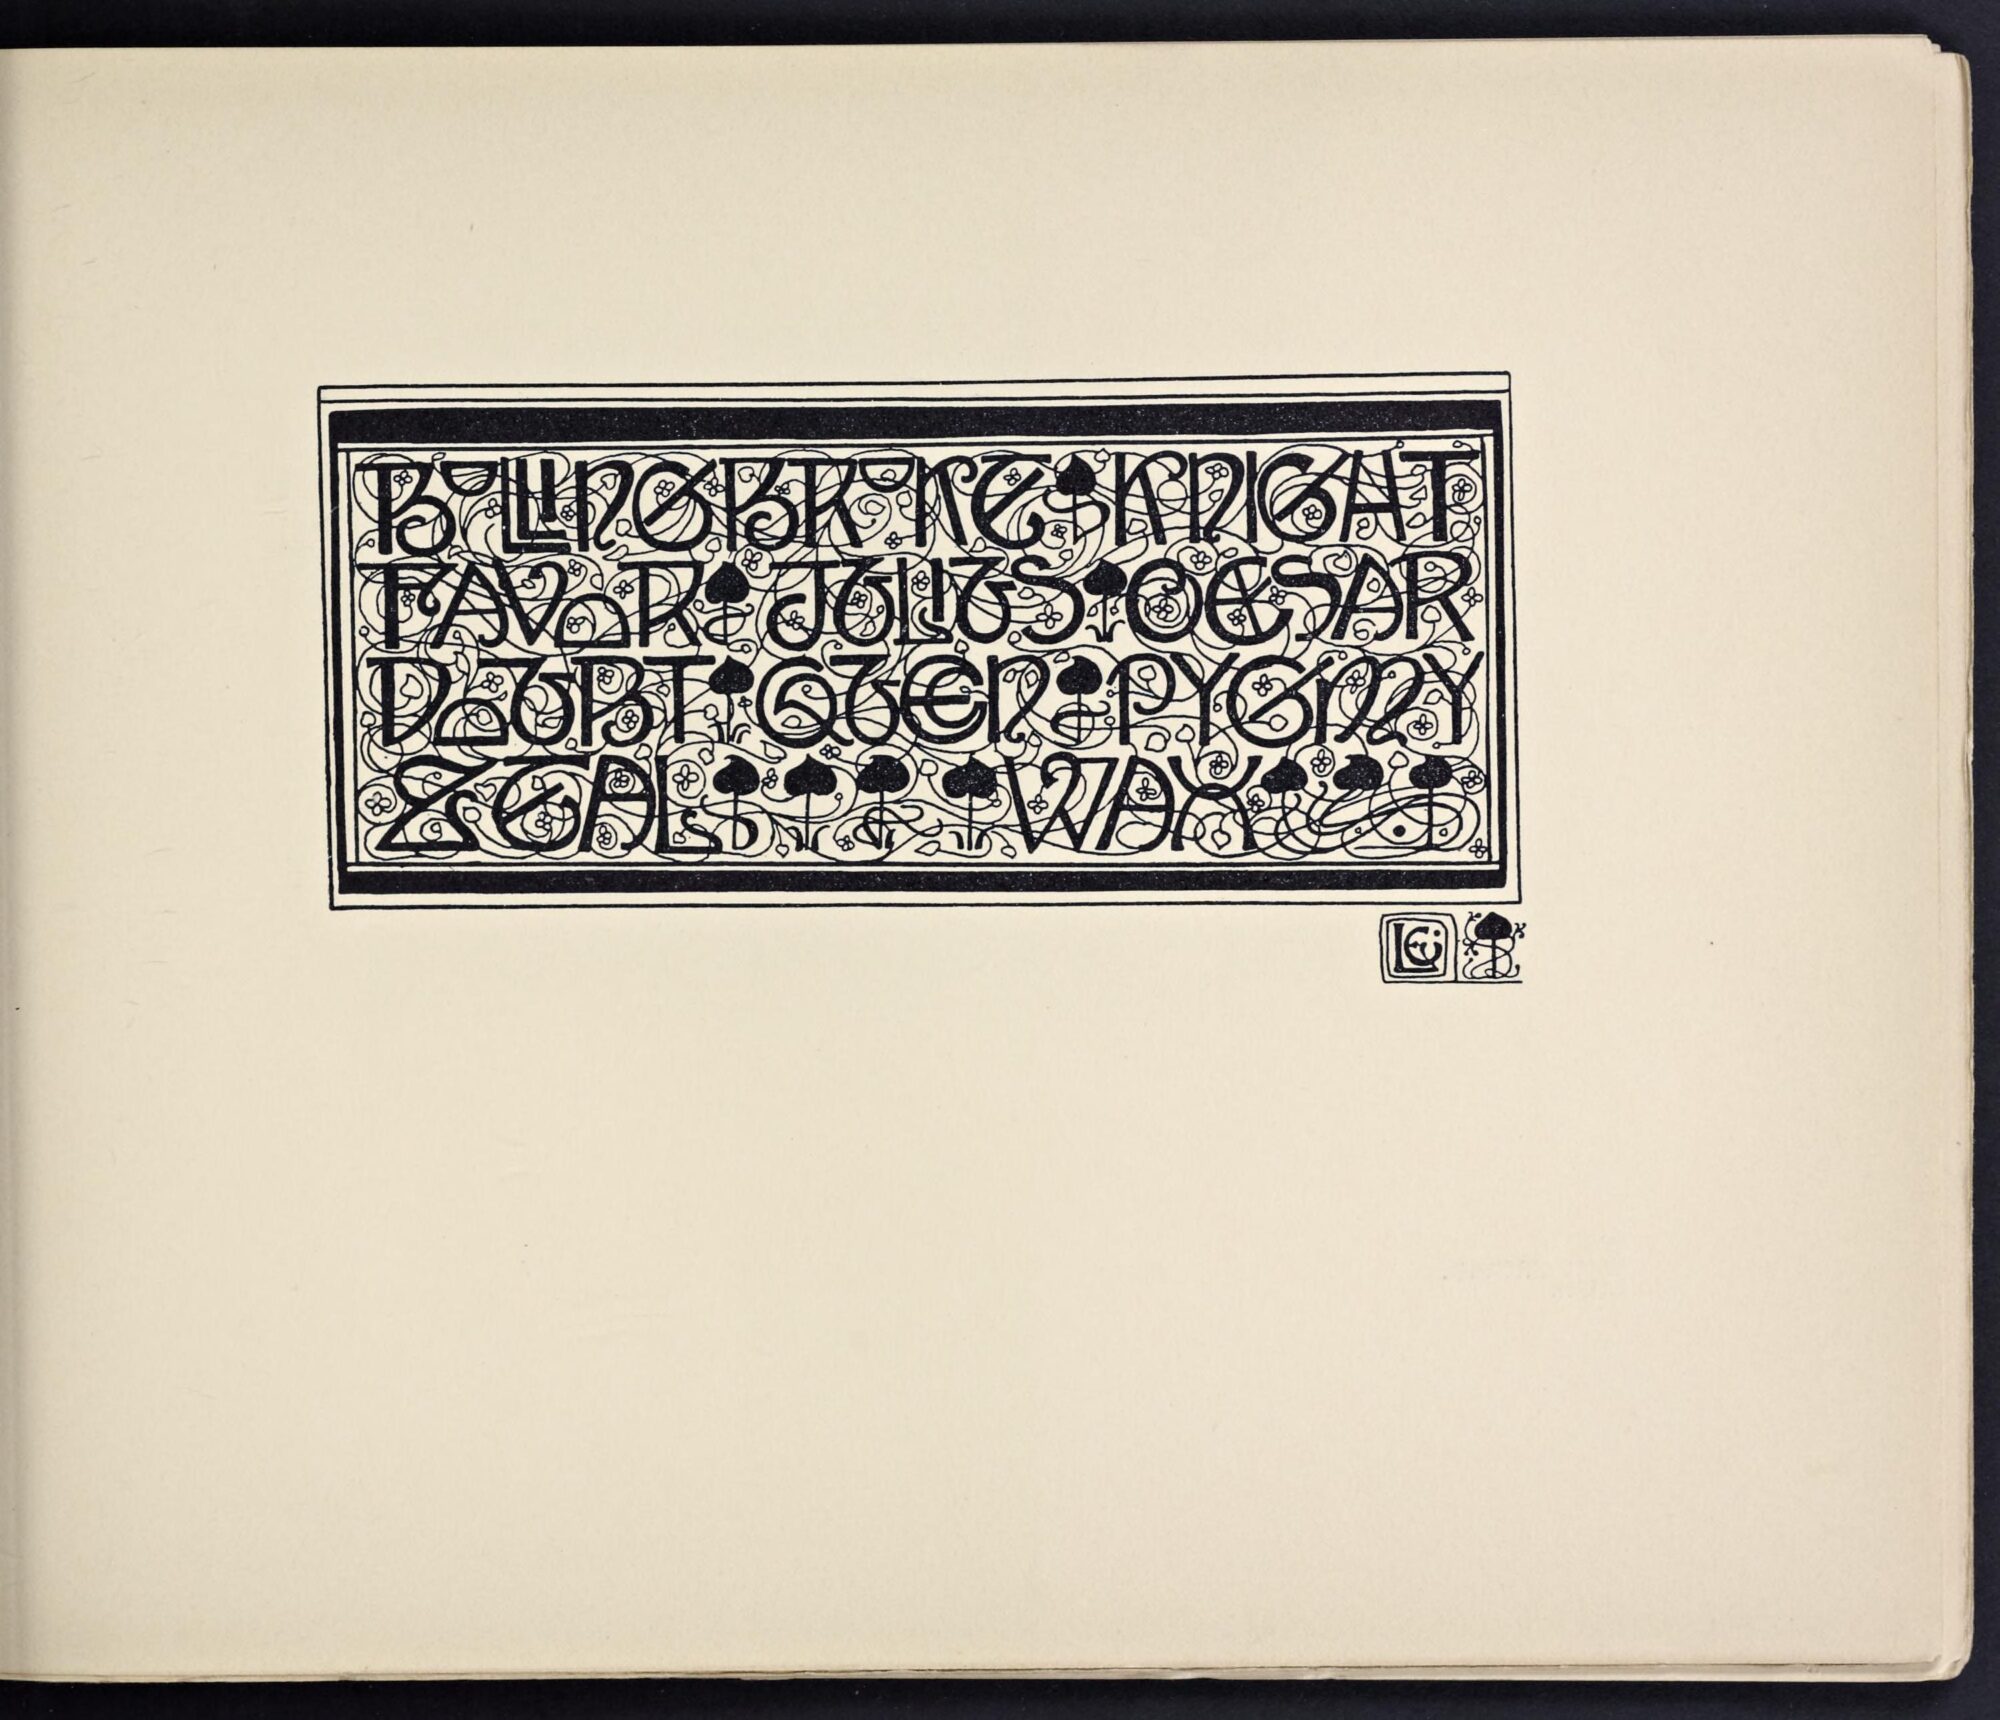 BOLLINGBROKE · KNIGHT
FAVOR · JULIUS · CESAR
DOUBT · QUEEN · PYGMY
ZEAL WAX